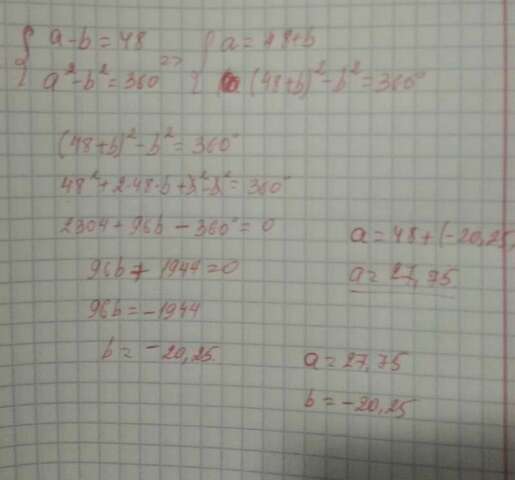 { a-b=48
a²-b²=360 => { a=48+b
(48+b)²-b²=360°
(48+b)²-b²=360°
48²+2·48·b+b²-b²=360°
2304+96b-360°=0
96b+1944=0
96b=-1944
b=-20,25
a=48+(-20,25
a=27,75
a=27,75
b=-20,25